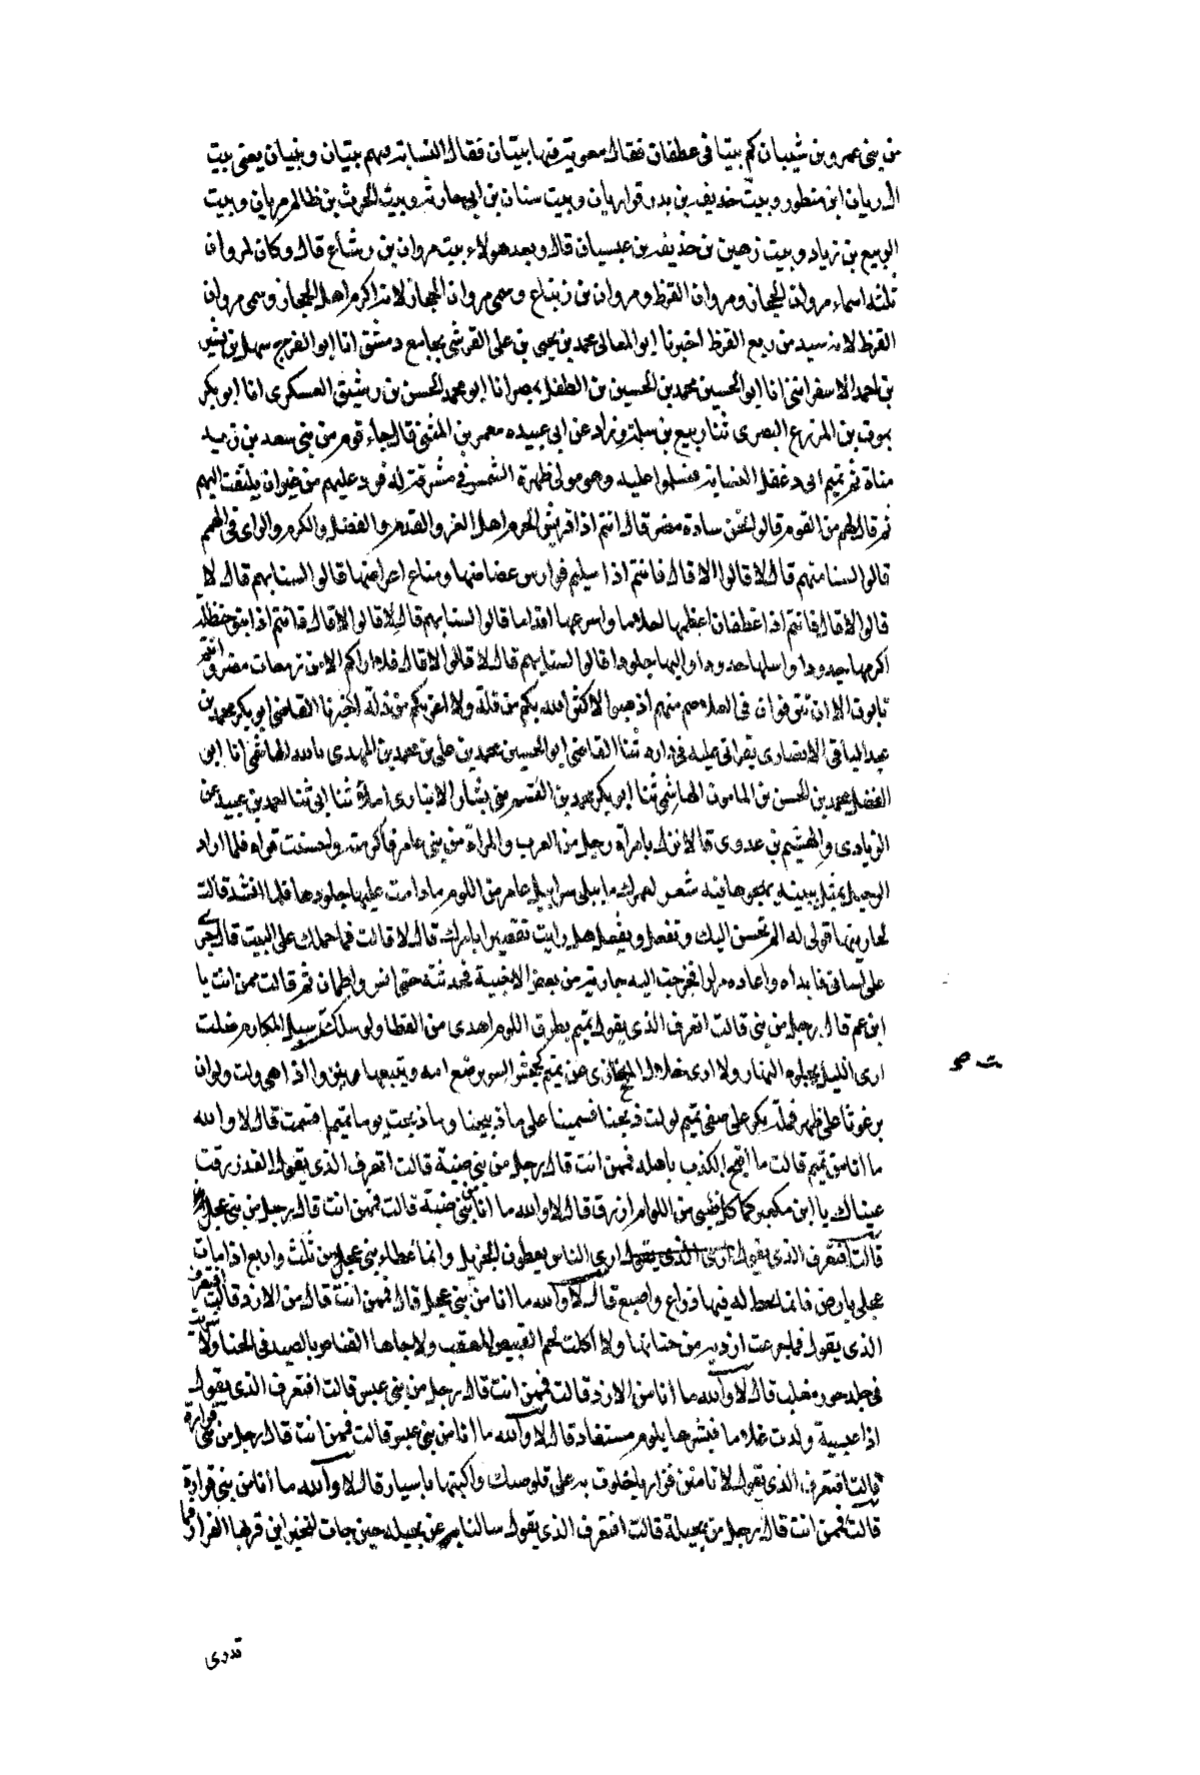 من بنى عمرو بن شيبان كم بيتا فى عطفان فقال معوية فيها بيتان فقال النسابة فيهم بيتان وبنيان يعنى بيت
ابن منظور وبيت حذيفه بن بدر فزاريان وبيت سنان بن ابى حارثه وبيت الحرث بن ظالم مريان وبيت
الربيع بن زياد وبيت زهير بن حذيفه بن عبسيان قال وبعد هولاء بيت مروان بن قال وكان لمروان
ثلثه اسماء مروان الحجاز ومروان القرظ ومروان بن زنباع وسمى مروان الحجاز لانه اكرم اهل الحجاز وسمى مروان
القرظ لانه سيد من ربع القرظ اخبرنا ابو المعالى محمد بن يحيى بن على القرشى بجامع دمشق انا ابو الفرج سهل بن بشر
بن احمد الاسفراينى انا ابو الحسين محمد بن الحسين بن الطفل بمصر انا ابو محمد الحسن بن رشيق العسكرى انا ابو بكر
يموت بن المزرع البصرى ثنا ربيع بن سلمة وزاد عن ابى عبيده معمر بن المثنى قال جاء قوم من بنى سعد بن زيد
مناة بن تميم الى دغفل النسابة فسلموا عليه وهو مولى ظهرة الشمس فى مشرقة له فرد عليهم من غير ان يلتفت اليهم
ثم قال لهم من القوم قالوا نحن سادة مضر قال انتم اذا قريش الحرم اهل العز والقدم والفضل والكرم والراى فى الهمم
قالوا لسنا منهم قال لا قالوا لا قال فانتم اذا سليم فوارس عضاضها ومناع اعراضها قالوا لسنا بهم قال لا
قالوا لا قال فانتم اذا غطفان اعظمها احلاما واسرعها اقداما قالوا لسنا بهم قال لا قالوا لا قال فانتم اذا بنو حنظلة
اكرمها جدودا واسلها حدودا والينها جلودا قالوا لسنا بهم قال لا قالوا لا قال فلا اراكم الا من زمعات مضر وانتم
تابون الا ان تترقوا فى الصميم منهم اذهبوا لا كثر الله بكم من قلة ولا اعز بكم من ذلة اخبرنا القاضى ابو بكر محمد بن
عبد الباقى الانصارى بقراتى عليه فى داره ثنا القاضى ابو الحسين محمد بن على بن محمد بن المهدى بالله الهاشمى انا ابو
الفضل محمد بن الحسن بن المامون الهاشمى ثنا ابو بكر محمد بن القسم بن بشار الانبارى املاء ثنا ابى ثنا احمد بن عبيد عن
الزيادى والهيثم بن عدوى قالا نزل بامراة رجل من العرب والمراة من بنى عامر فاكرمته واحسنت قراه فلما اراد
الرحيل تمثل ببيت يهجوها فيه شعر لعمرك ما يبلى سرابيل عامر من اللوم ما دامت عليها جلودها فلما انشد قالت
لجاريتها قولى له الم تحسن اليك وتفعل وتفعل هل رايت تقصيرا بامرك قال لا قالت فما حملك على البيت قال جرى
على لسانى فابداه واعاده فخرجت اليه جارية من بعض الاخبية فحدثته حتى انس واطمان ثم قالت ممن انت يا
ابن عم قال رجل من بنى قالت اتعرف الذى يقول تميم بطرق اللوم اهدى من القطا ولو سلكت سبل المكارم ضلت
ارى الليل يجلوه النهار ولا ارى خلال المخازى عن تميم تجلت ولو ان
برغوثا على ظهر قملة يكر على صفى تميم لولت ذبحنا فسمينا على ما ذبيحنا وما ذبحت يوما تميم فسمت قال لا والله
ما انا من تميم قالت ما اقبح الكذب باهله فممن انت قال رجل من بنى ضبة قالت اتعرف الذى يقول لقد زرقت
عيناك يا ابن مكعبر كما كل ضبى من اللوم ازرق قال لا والله ما انا من بنى ضبة قالت فممن انت قال رجل من بنى عجل
قالت افتعرف الذى يقول ارى الناس يعطون الجزيل وانما عطاء بنى عجل من ثلث واربع اذا مات
عجلى بارض فانما يخط له فيها ذراع واصبع قال لا والله ما انا من بنى عجل قال فممن انت قال من الازد قالت افتعرف
الذى يقول فما جزعت ازدية من ختانها ولا اكلت لحم القنيص المعقب ولا جاها القناص بالصيد فى الخبا ولا شربت
فى جلد حور معلب قال لا والله ما انا من الازد قالت فممن انت قال رجل من بنى عبس قالت افتعرف الذى يقول
اذا عبسية ولدت غلاما فبشرها بلوم مستفاد قال لا والله ما انا من بنى عبس قالت فممن انت قال رجل من بنى فزارة
قالت افتعرف الذى يقول لا تامنن فزاريا خلوت به على قلوصك واكتبها باسيار قال لا والله ما انا من بنى فزارة
قالت فممن انت قال رجل من بجيلة قالت افتعرف الذى يقول سالنا عن بجيله حين جات لتخبر اين قر بها القرار فما
تدرى